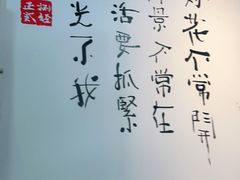 花不常開
景不常在
活要抓緊
光了我